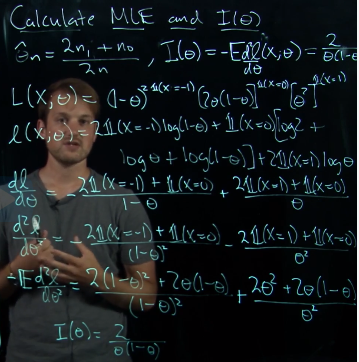 Calculate MLE and I(θ)
θ̂n = 2n₁ + n₀ / 2n , I(θ) = -E dℓ/dθ (x;θ) = 2 / θ(1-
L(x;θ) = (1-θ)^2𝟙(x=-1) [2θ(1-θ)]^𝟙(x=0) [θ²]^𝟙(x=1)
ℓ(x;θ) = 2𝟙(x=-1) log(1-θ) + 𝟙(x=0) [log2 +
logθ + log(1-θ)] + 2𝟙(x=1) logθ
dℓ/dθ = - 2𝟙(x=-1) + 𝟙(x=0) / 1-θ + 2𝟙(x=1) + 𝟙(x=0) / θ
d²ℓ/dθ² = - 2𝟙(x=-1) + 𝟙(x=0) / (1-θ)² - 2𝟙(x=1) + 𝟙(x=0) / θ²
-𝔼 d²ℓ/dθ² = 2(1-θ)² + 2θ(1-θ) / (1-θ)² + 2θ² + 2θ(1-θ) / θ²
I(θ) = 2 / θ(1-θ)